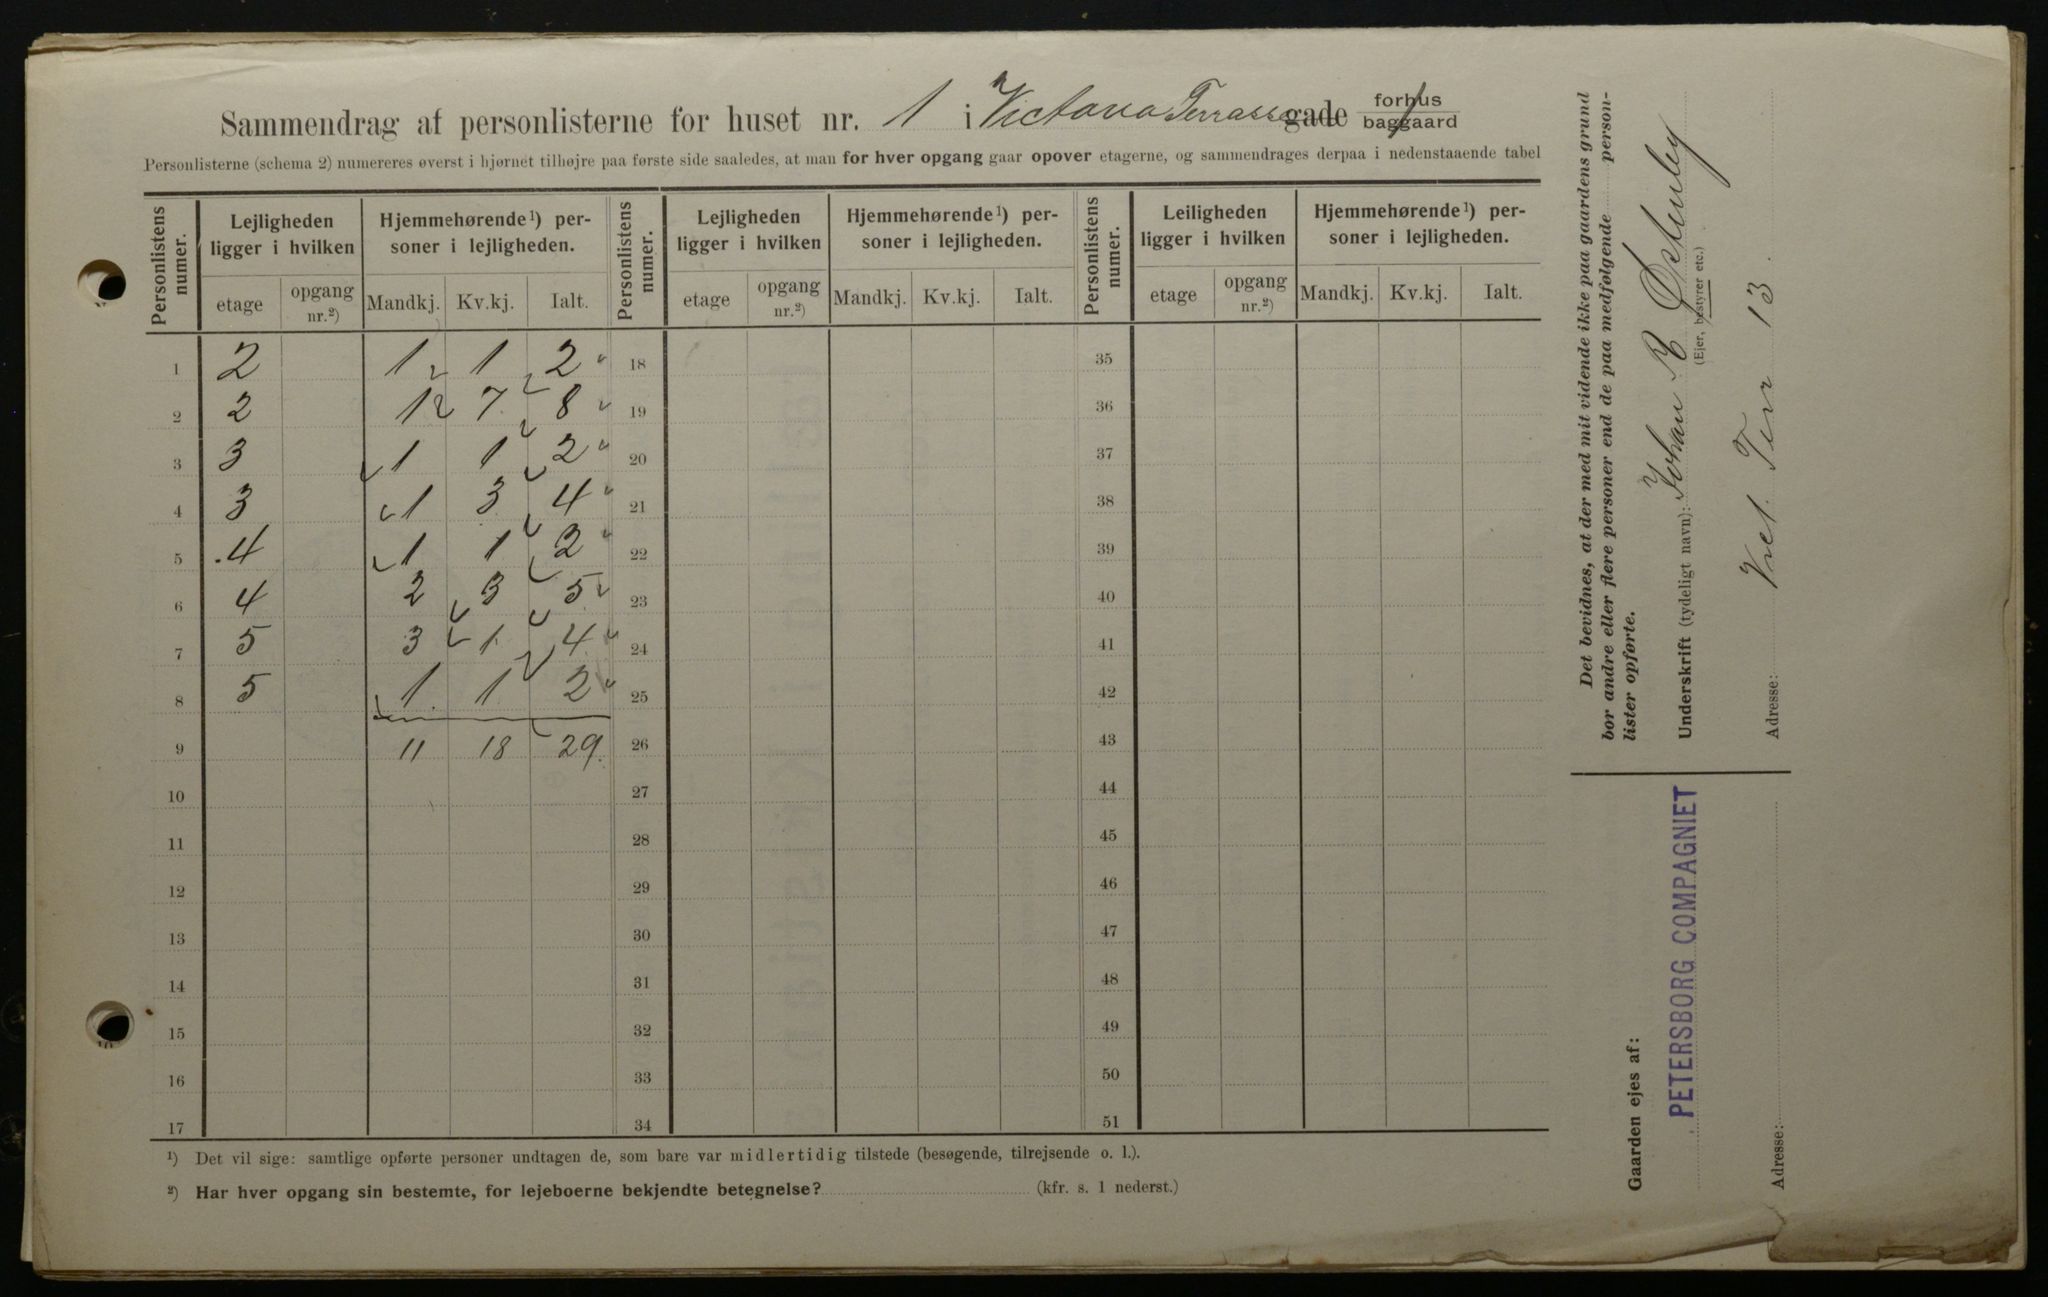 Sammendrag af personlisterne for huset nr. 1 i Victoria Terrasse gade forhus baggaard
Personlisterne (schema 2) numereres øverst i hjørnet tilhøjre paa første side saaledes, at man for hver opgang gaar opover etagerne, og sammendrages derpaa i nedenstaaende tabel
Personlistens numer. Lejligheden ligger i hvilken Hjemmehørende ¹) personer i lejligheden. Personlistens numer. Lejligheden ligger i hvilken Hjemmehørende ¹) personer i lejligheden. Personlistens numer. Leiligheden ligger i hvilken Hjemmehørende ¹) personer i lejligheden.
etage opgang nr.²) Mandkj. Kv.kj. Ialt. etage opgang nr.²) Mandkj. Kv.kj. Ialt. etage opgang nr.²) Mandkj. Kv.kj. Ialt.
1 2 1 1 2 18 35
2 2 1 7 8 19 36
3 3 1 1 2 20 37
4 3 1 3 4 21 38
5 4 1 1 2 22 39
6 4 2 3 5 23 40
7 5 3 1 4 24 41
8 5 1 1 2 25 42
9 11 18 29 26 43
10 27 44
11 28 45
12 29 46
13 30 47
14 31 48
15 32 49
16 33 50
17 34 51
¹) Det vil sige: samtlige opførte personer undtagen de, som bare var midlertidig tilstede (besøgende, tilrejsende o. l.).
²) Har hver opgang sin bestemte, for lejeboerne bekjendte betegnelse? (kfr. s. 1 nederst.)
Det bevidnes, at der med mit vidende ikke paa gaardens grund
bor andre eller flere personer end de paa medfølgende personlister opførte.
Underskrift (tydeligt navn): Johan R Østenby
(Ejer, bestyrer etc.)
Adresse: Vict. Terr 13.
Gaarden ejes af:
PETERSBORG COMPAGNIET
Adresse: